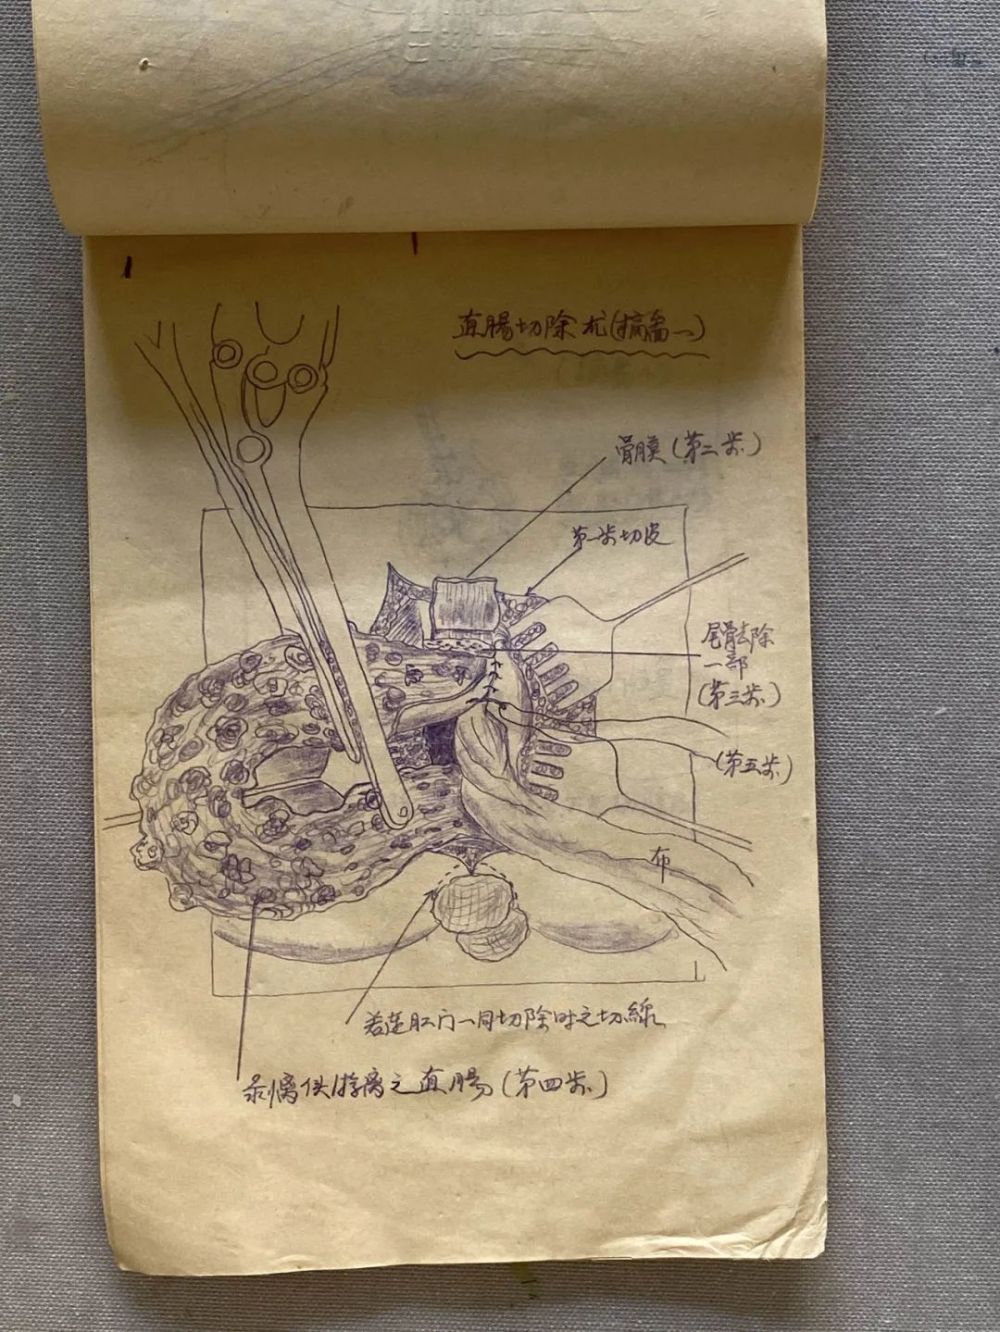 直腸切除术(摘畨一)
骨膜(第二步)
第一步切皮
尾骨去除
一部
(第三步)
(第五步)
布
若連肛门一同切除时之切線
剥离供游离之直腸(第四步)